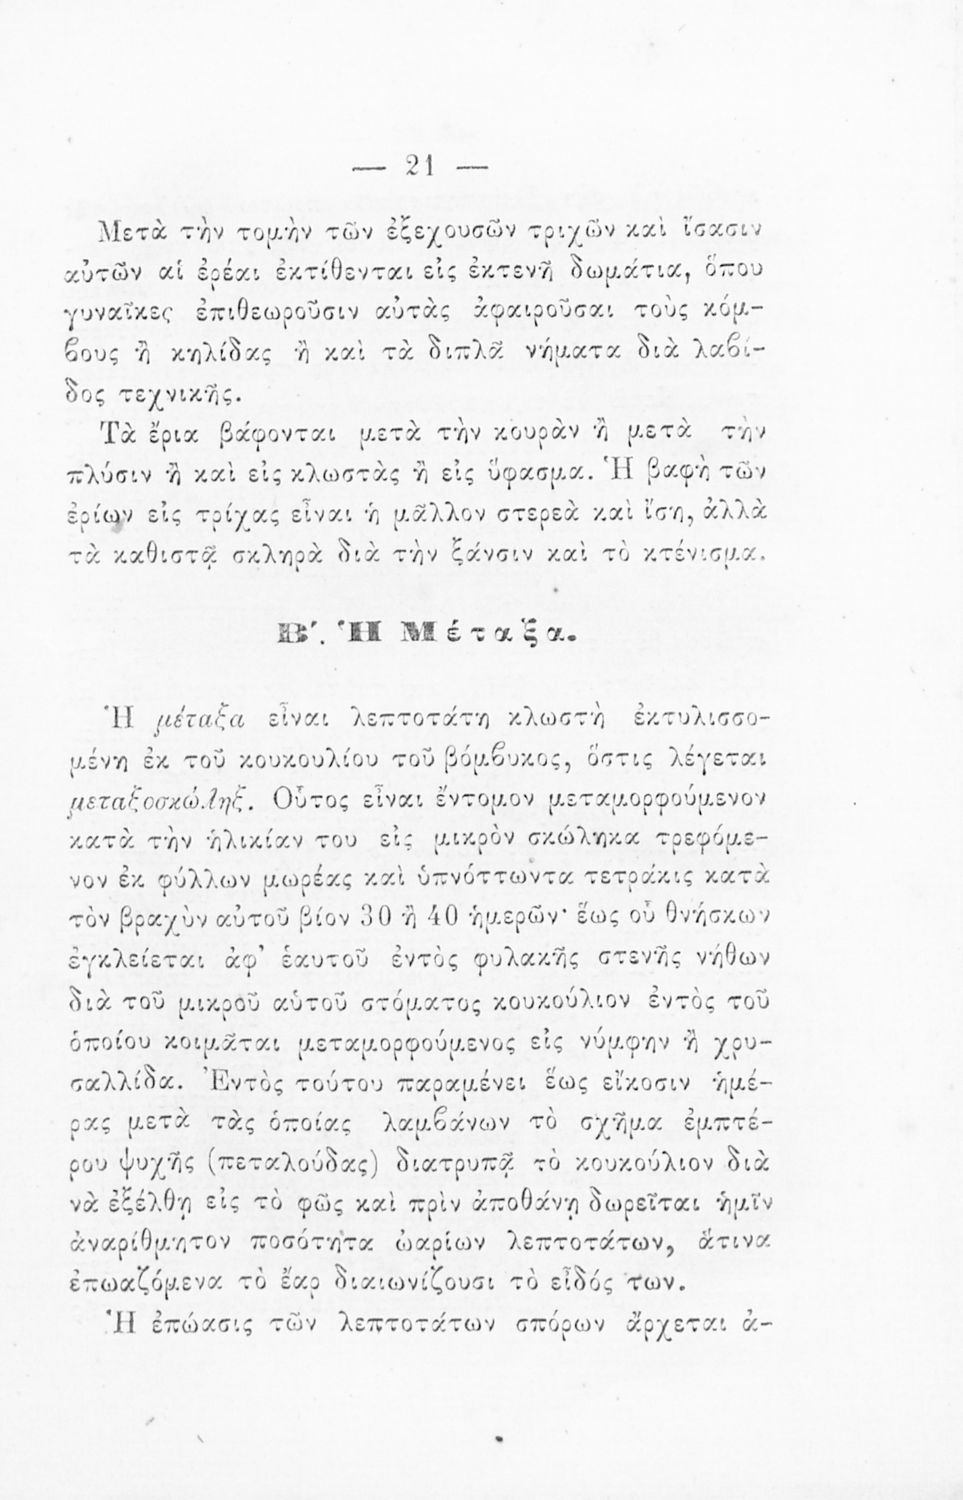 — 21 —
Μετὰ τὴν τομὴν τῶν ἐξεχουσῶν τριχῶν καὶ ἴσασιν
αὐτῶν αἱ ἐρέαι ἐκτίθενται εἰς ἐκτενῆ δωμάτια, ὅπου
γυναῖκες ἐπιθεωροῦσιν αὐτὰς ἀφαιροῦσαι τοὺς κόμ-
ϐους ἢ κηλίδας ἢ καὶ τὰ διπλᾶ νήματα διὰ λαϐί-
δος τεχνικῆς.
Τὰ ἔρια βάφονται μετὰ τὴν κουρὰν ἢ μετὰ τὴν
πλύσιν ἢ καὶ εἰς κλωστὰς ἢ εἰς ὕφασμα. Ἡ βαφὴ τῶν
ἐρίων εἰς τρίχας εἶναι ἡ μᾶλλον στερεὰ καὶ ἴση, ἀλλὰ
τὰ καθιστᾷ σκληρὰ διὰ τὴν ξάνσιν καὶ τὸ κτένισμα.
Β΄. Ἡ Μέταξα.
Ἡ μέταξα εἶναι λεπτοτάτη κλωστὴ ἐκτυλισσο-
μένη ἐκ τοῦ κουκουλίου τοῦ βόμϐυκος, ὅστις λέγεται
μεταξοσκώληξ. Οὗτος εἶναι ἔντομον μεταμορφούμενον
κατὰ τὴν ἡλικίαν του εἰς μικρὸν σκώληκα τρεφόμε-
νον ἐκ φύλλων μωρέας καὶ ὑπνόττωντα τετράκις κατὰ
τὸν βραχὺν αὐτοῦ βίον 30 ἢ 40 ἡμερῶν· ἕως οὗ θνήσκων
ἐγκλείεται ἀφ’ ἑαυτοῦ ἐντὸς φυλακῆς στενῆς νήθων
διὰ τοῦ μικροῦ αὑτοῦ στόματος κουκούλιον ἐντὸς τοῦ
ὁποίου κοιμᾶται μεταμορφούμενος εἰς νύμφην ἢ χρυ-
σαλλίδα. Ἐντὸς τούτου παραμένει ἕως εἴκοσιν ἡμέ-
ρας μετὰ τὰς ὁποίας λαμϐάνων τὸ σχῆμα ἐμπτέ-
ρου ψυχῆς (πεταλούδας) διατρυπᾷ τὸ κουκούλιον διὰ
νὰ ἐξέλθῃ εἰς τὸ φῶς καὶ πρὶν ἀποθάνῃ δωρεῖται ἡμῖν
ἀναρίθμητον ποσότητα ὠαρίων λεπτοτάτων, ἅτινα
ἐπωαζόμενα τὸ ἔαρ διαιωνίζουσι τὸ εἶδός των.
Ἡ ἐπώασις τῶν λεπτοτάτων σπόρων ἄρχεται ἀ-